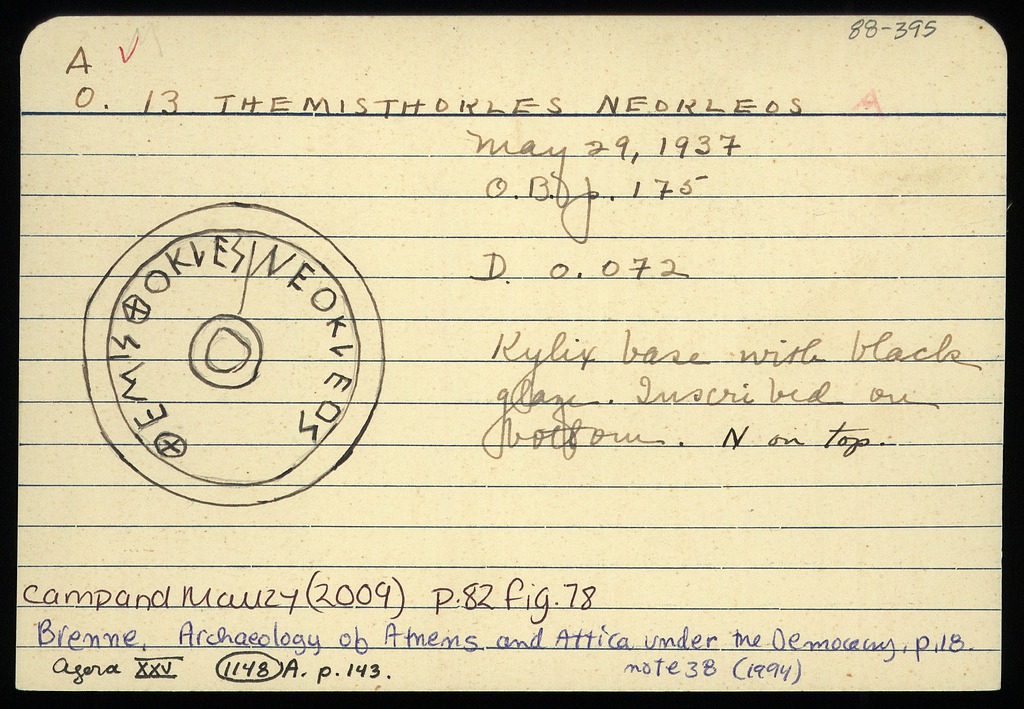 88-395
A ✓
O. 13 THEMISTHOKLES NEOKLEOS A
May 29, 1937
O.B. p. 175
D. 0.072
⊕EMIS⊕OKLES NEOKLEOS
Kylix base with black
glaze. Inscribed on
bottom. N on top.
Camp and Mauzy (2009) p.82 fig.78
Brenne, Archaeology of Athens and Attica under the Democracy, p.18.
note 38 (1994)
Agora XXV 1148 A. p. 143.